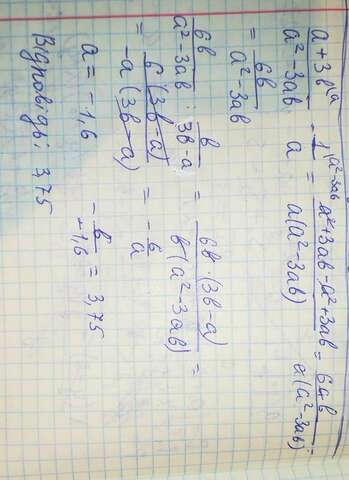 (a+3b)^(a)/(a²-3ab) - 1^(a²-3ab)/a = (a²+3ab-a²+3ab)/(a(a²-3ab)) = 6ab/(a(a²-3ab)) =
= 6b/(a²-3ab)
6b/(a²-3ab) : b/(3b-a) = 6b·(3b-a)/(b(a²-3ab)) =
= 6(3b-a)/(-a(3b-a)) = -6/a
a = -1,6 -6/(-1,6) = 3,75
Відповідь: 3,75